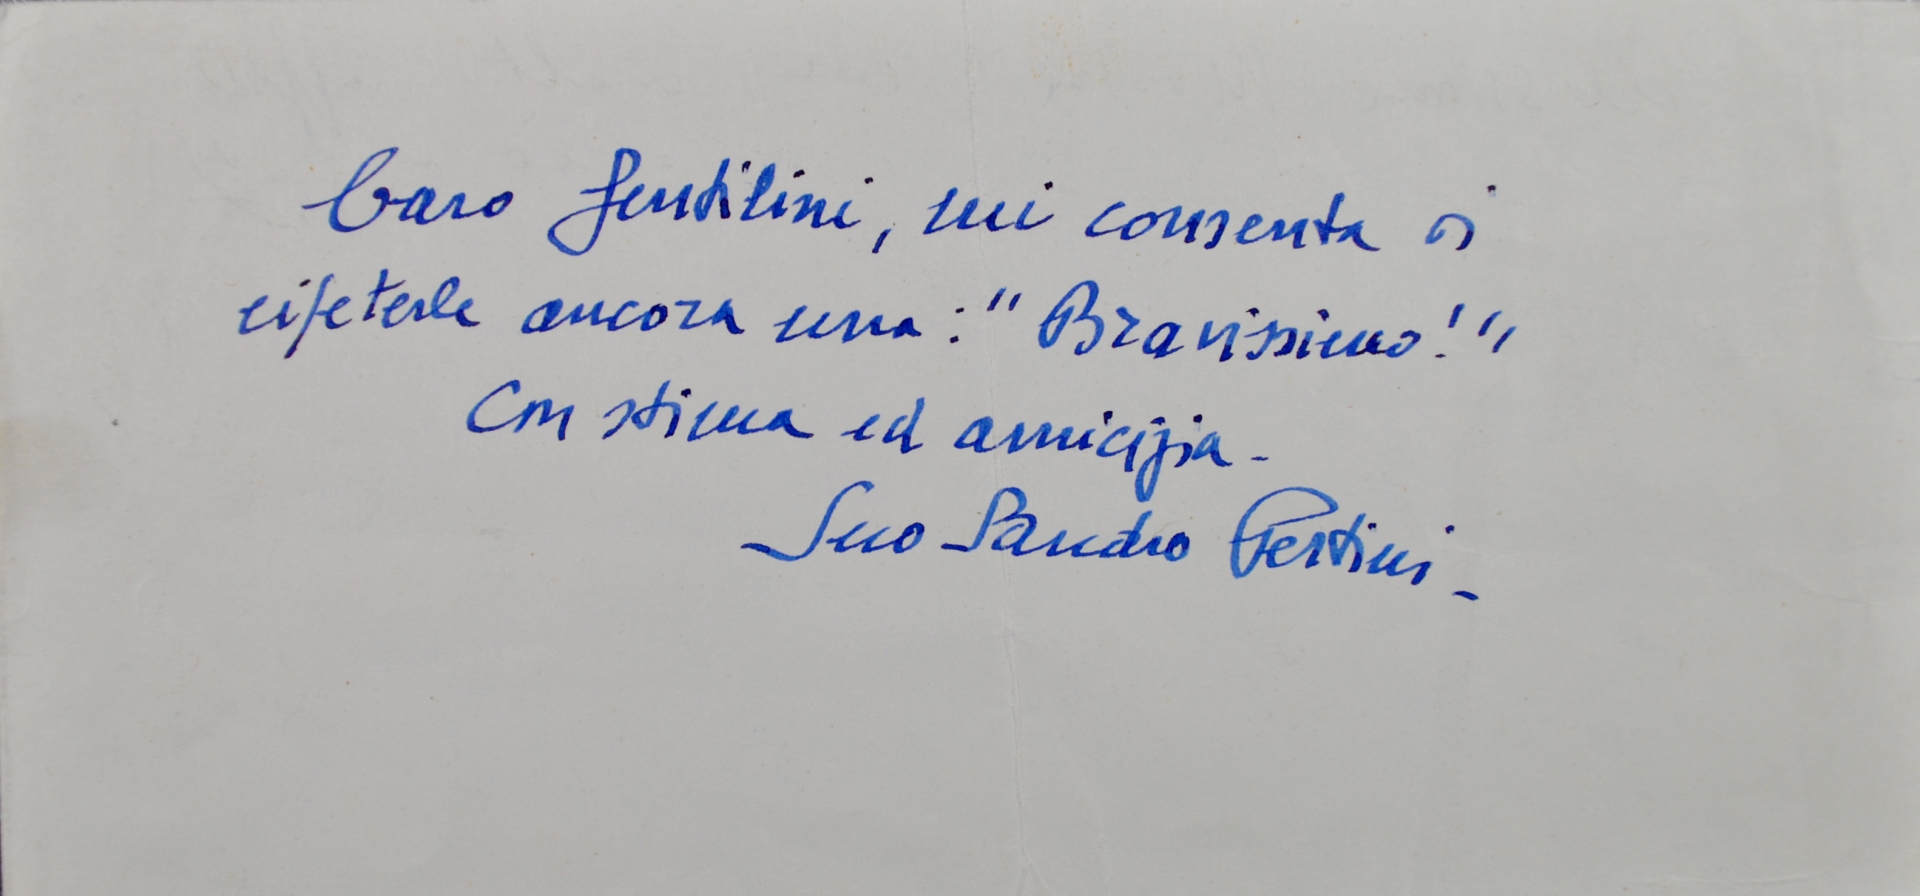 Caro Gentilini, mi consenta di
ripeterle ancora una: "Bravissimo!"
Con stima ed amicizia -
Suo Sandro Pertini -